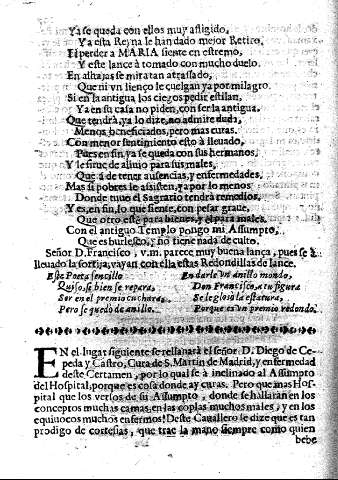 Ya se queda con ellos muy afligido,
Y a esta Reyna le han dado mejor Retiro.
El perder a MARIA siente en estremo,
Y este lance à tomado con mucho duelo.
En alhajas se mira tan atrassado,
Que ni vn lienço le cuelgan ya por milagro.
Si en la antigua los ciegos pedir estilan,
Ya en su casa no piden, con ser la antigua.
Que tendrà, ya lo dize, no admire duda,
Menos beneficiados, pero mas curas.
Con menor sentimiento esto à lleuado,
Pues en fin, ya se queda con sus hermanos,
Y le sirue de aliuio para sus males,
Que à de tener ausencias, y enfermedades.
Mas si pobres le assisten, ya por lo menos
Donde tuuo el Sagrario tendrà remedios,
Y es, en fin, lo que siente, con pesar graue,
Que otro esté para bienes, y él para males.
Con el antiguo Templo pongo mi Assumpto,
Que es burlesco, y no tiene nada de culto.
Señor D. Francisco, v.m. parece muy buena lança, pues se à
lleuado la sortija, vayan con ella estas Redondillas de lance.
Este Poeta sencillo
Quiso, si bien se repara,
Ser en el premio cuchara,
Pero se quedò de anillo.
En darle vn anillo mondo,
Don Francisco, a tu figura
Se le glosò la estatura,
Porque es vn premio redondo.
EN el lugar siguiente se rellanarà el señor D. Diego de Cepeda
y Castro, Cura de S. Martin de Madrid, y en fermedad
deste Certamen, por lo qual se à inclinado al Assumpto
del Hospital, porque es cosa donde ay curas. Pero que mas Hospital
que los versos de su Assumpto, donde se hallaràn en los
conceptos muchas camas, en las coplas muchos males, y en los
equiuocos muchos enfermos? Deste Cauallero se dize que es tan
prodigo de cortesias, que trae la mano siempre como quien
bebe